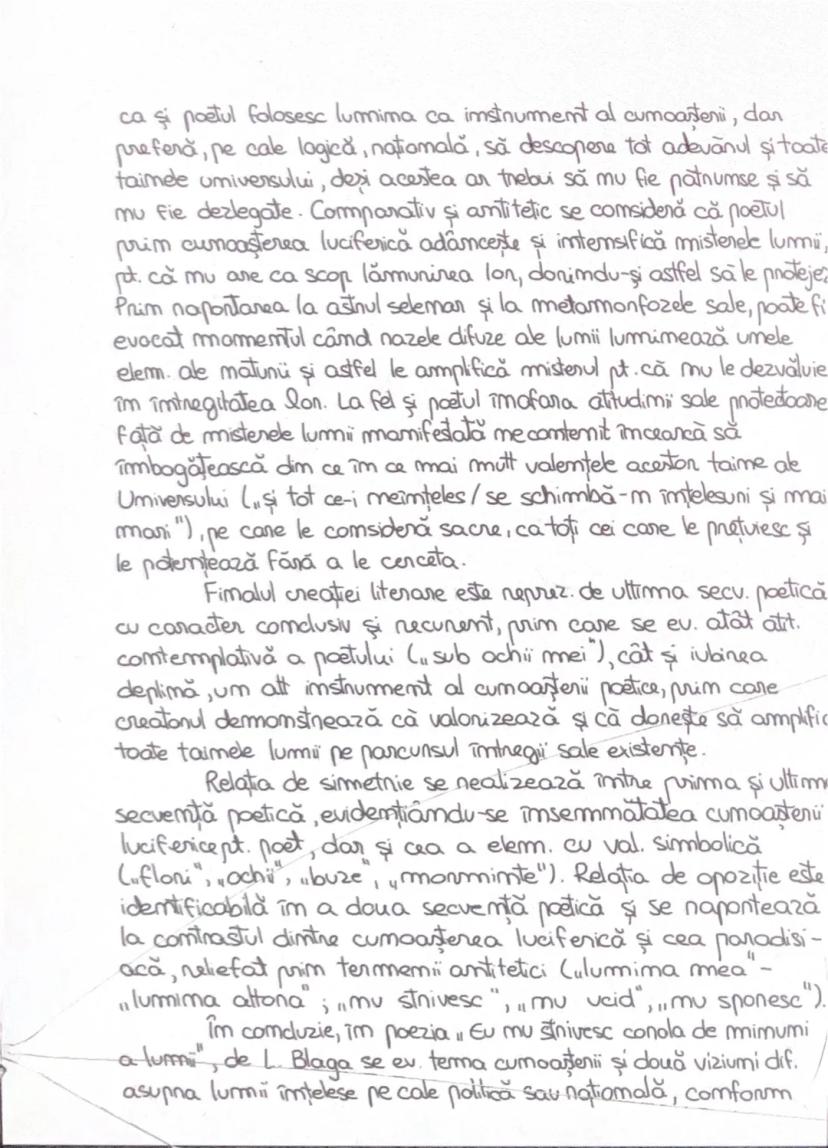 ca și poetul folosesc lumina ca instrument al cunoașterii, dar
preferă, pe cale logică, rațională, să descopere tot adevărul și toate
tainele universului, deși acestea ar trebui să nu fie pătrunse și să
nu fie dezlegate. Comparativ și antitetic se consideră că poetul
prin cunoașterea luciferică adâncește și intensifică misterele lumii,
pt. că nu are ca scop lămurirea lor, dorindu-și astfel să le protejez
Prin raportarea la astrul selenar și la metamorfozele sale, poate fi
evocat momentul când razele difuze ale lumii luminează unele
elem. ale naturii și astfel le amplifică misterul pt. că nu le dezvăluie
în întregitatea lor. La fel și poetul în ofara atitudinii sale protectoare
față de misterele lumii manifestată necontenit încearcă să
îmbogățească din ce în ce mai mult valențele acestor taine ale
Universului („și tot ce-i neînțeles / se schimbă-n înțelesuri și mai
mari"), pe care le consideră sacre, ca toți cei care le prețuiesc și
le potențează fără a le cerceta.
Finalul creației literare este reprez. de ultima secv. poetică
cu caracter conclusiv și recurent, prin care se ev. atât atit.
contemplativă a poetului („sub ochii mei"), cât și iubirea
deplină, un alt instrument al cunoașterii poetice, prin care
creatorul demonstrează că valorizează și că dorește să amplific
toate tainele lumii pe parcursul întregii sale existențe.
Relația de simetrie se realizează între prima și ultim
secvență poetică, evidențiându-se însemnătatea cunoașterii
luciferice pt. poet, dar și cea a elem. cu val. simbolică
(„flori", „ochii", „buze", „morminte"). Relația de opoziție este
identificabilă în a doua secvență poetică și se raportează
la contrastul dintre cunoașterea luciferică și cea paradisi-
acă, reliefat prin termenii antitetici („lumina mea"-
„lumina altora"; „nu strivesc", „nu ucid", „nu sporesc").
În concluzie, în poezia „Eu nu strivesc corola de minuni
a lumii", de L. Blaga se ev. tema cunoașterii și două viziuni dif.
asupra lumii înțelese pe cale politică sau rațională, conform